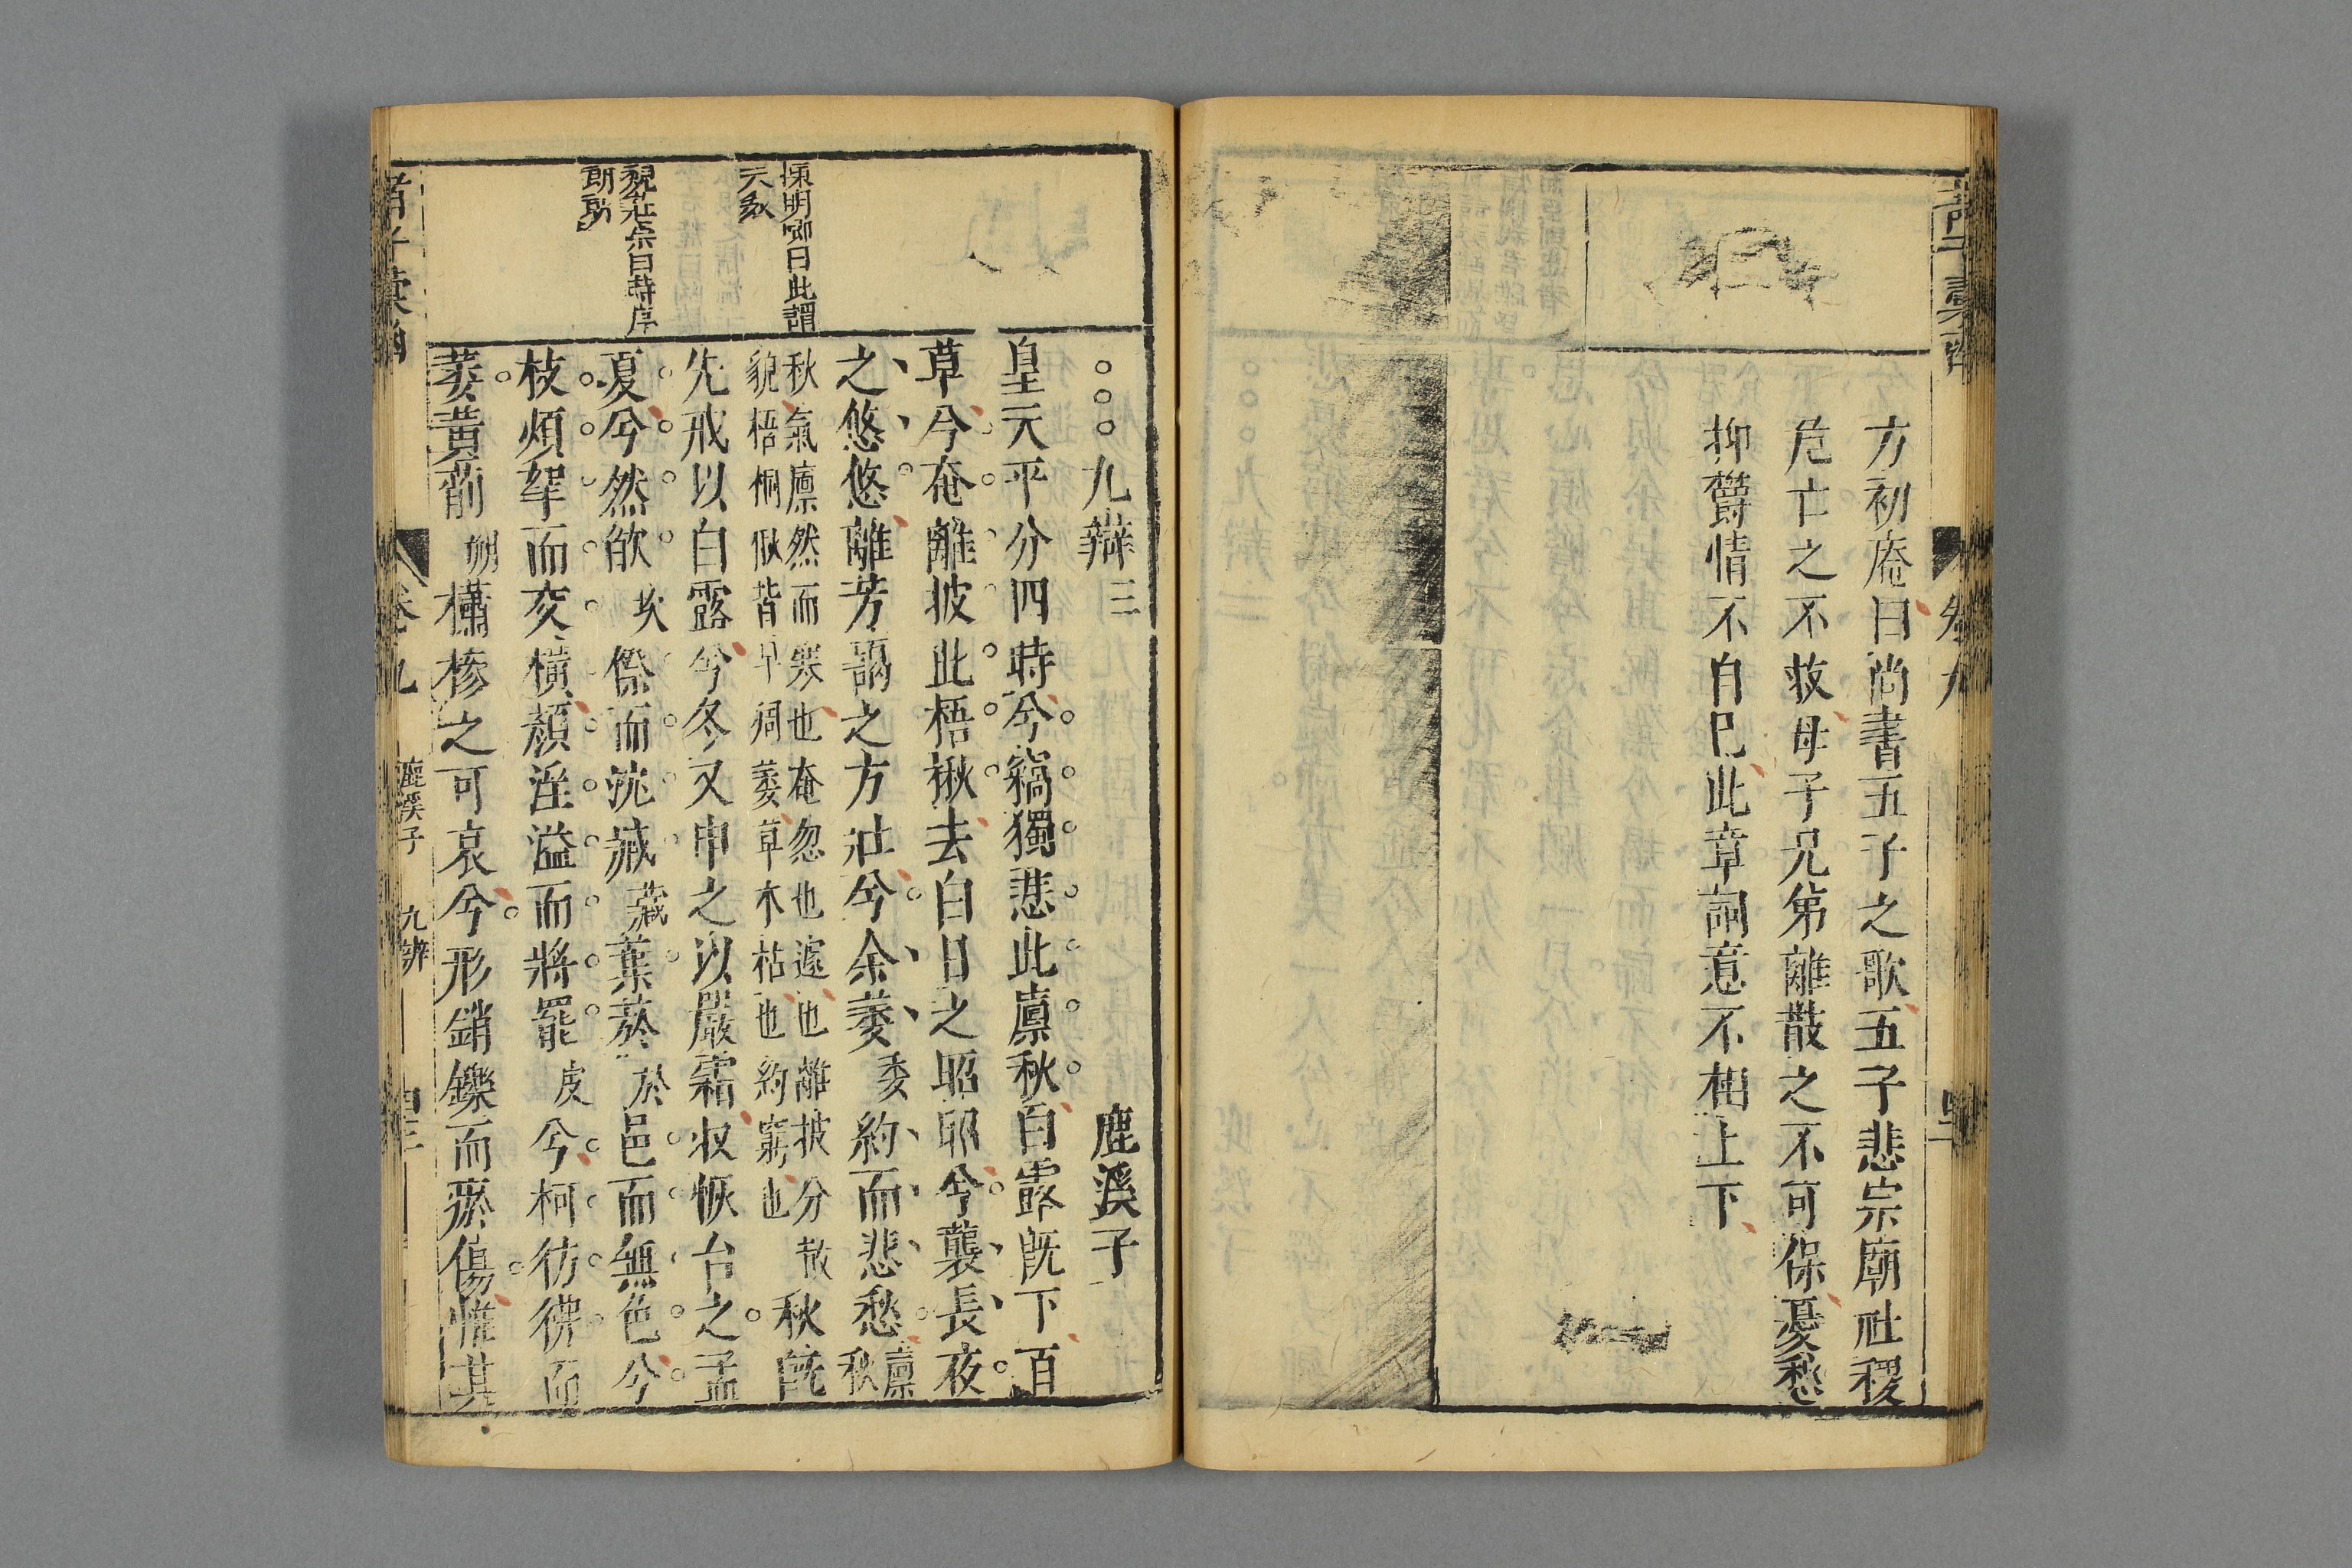 方初庵曰尚書五子之歌五子悲宗廟社稷
危亡之不救母子兄弟離散之不可保憂愁
抑欝情不自巳此章詞意不相上下
卷九
九辯三
鹿溪子
皇天平分四時兮竊獨悲此廩秋白露旣下百
草兮奄離披此梧楸去白日之昭昭兮襲長夜
之悠悠離芳藹之方壯兮余萎委約而悲愁廩秋
秋氣廩然而寒也奄忽也遽也離披分散
貌梧桐楸皆早凋萎草木枯也約窮也
秋旣
先戒以白露兮冬又申之以嚴霜收恢台之孟
夏兮然欿坎傺而沈藏藏葉菸於邑而無色兮
枝煩挐而交橫顏淫溢而將罷疲兮柯彷彿而
萎黃萷梢櫹槮之可哀兮形銷鑠而瘀傷惟其
陳明卿曰此謂
天敘
說莊宗曰時序
諸子彙函
卷九
鹿溪子
九辨
四三